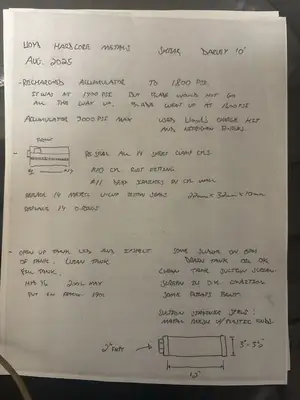 HARDCORR METALS SHEAR DARLEY 10'
AUG. 2025
- RECHARGED ACCUMULATOR TO 1800 PSI.
IT WAS AT 1400 PSI BUT BLADE WOULD NOT GO
ALL THE WAY UP. BLADE WENT UP AT 1200 PSI
ACCUMULATOR 3000 PSI MAX USED CHARGE KIT
AND NITROGEN BOTTLES
FRONT
- RE-SEAL ALL 14 SHEET CLAMP CYLS.
#10 CYL. RUST PITTING
#11 DEEP SCRATCHES IN CYL WALL
REPLACE 14 METRIC U-CUP PISTON SEALS 22mm X 32mm X 10mm
REPLACE 14 O-RINGS
- OPEN UP TANK LID AND INSPECT SOME SLUDGE ON BTM
OF TANK. CLEAN TANK DRAIN TANK OIL OK
FILL TANK. CLEAN TANK SUCTION SCREEN
200L MAX SCREEN IN O.K. CONDITION
PUT IN APPROX 190L SOME PLEATS BENT.
SUCTION STRAINER SPECS:
METAL MESH W/ PLASTIC ENDS
2" FNPT 3"-3 1/2"